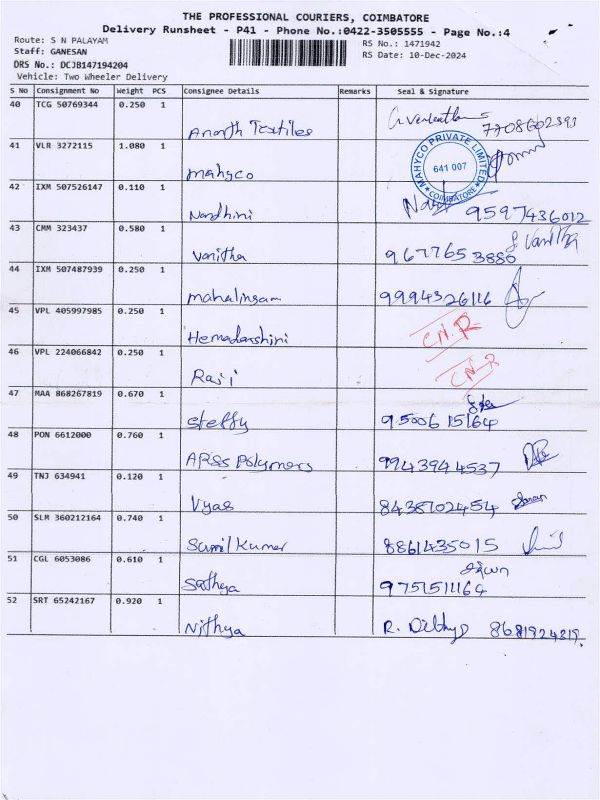 THE PROFESSIONAL COURIERS, COIMBATORE
Delivery Runsheet - P41 - Phone No.:0422-3505555 - Page No.:4
Route: S N PALAYAM
RS No.: 1471942
Staff: GANESAN
RS Date: 10-Dec-2024
DRS No.: DCJB147194204
Vehicle: Two Wheeler Delivery
S No Consignment No Weight PCS Consignee Details Remarks Seal & Signature
40 TCG 50769344 0.250 1
Ananth Textiles 7708602393
41 VLR 3272115 1.080 1
Mahyco MAHYCO PRIVATE LIMITED 641 007 COIMBATORE
42 IXM 507526147 0.110 1
Nandhini 9597436012
43 CMM 323437 0.580 1
Vanitha 9677653880 Vanitha
44 IXM 507487939 0.250 1
mahalingam 9994326116
45 VPL 405997985 0.250 1
Hemadarshini C.N.R
46 VPL 224066842 0.250 1
Raji C.N.R
47 MAA 868267819 0.670 1
Steffy 9500615164
48 PON 6612000 0.760 1
ARSS Polymers 9943944537
49 TNJ 634941 0.120 1
Vyas 8438702454
50 SLM 360212164 0.740 1
Sumil Kumar 8861435015
51 CGL 6053086 0.610 1
Sathya 9751511164
52 SRT 65242167 0.920 1
Nithya R. 8681924319